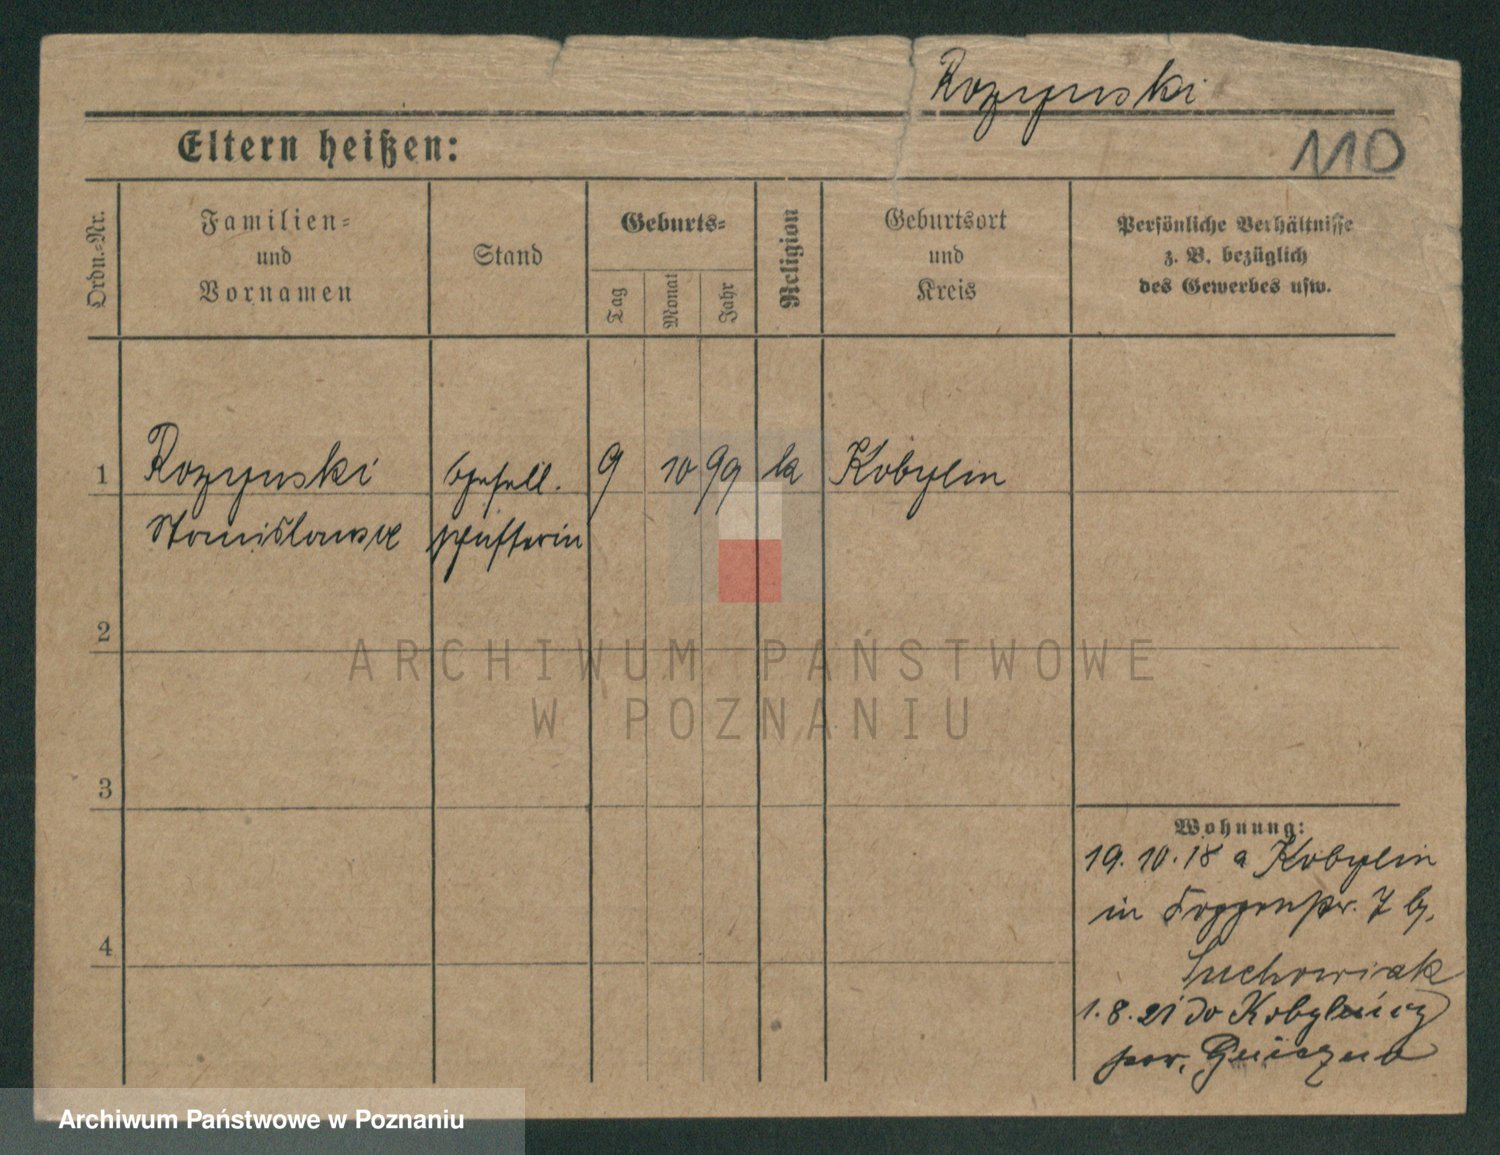 Rozynski
Eltern heißen:
110
Ordn.-Nr.
Familien-
und
Vornamen
Stand
Geburts-
Tag
Monat
Jahr
Religion
Geburtsort
und
Kreis
Persönliche Verhältnisse
z. B. bezüglich
des Gewerbes usw.
1
Rozynski
Stanislawa
Gesell-
schafterin
9
10
99
ka
Kobylin
2
3
4
ARCHIWUM PAŃSTWOWE
W POZNANIU
Wohnung:
19.10.18 a Kobylin
in 7 b.
Suchowiak
1.8.21 do
pow. Gniezno
Archiwum Państwowe w Poznaniu